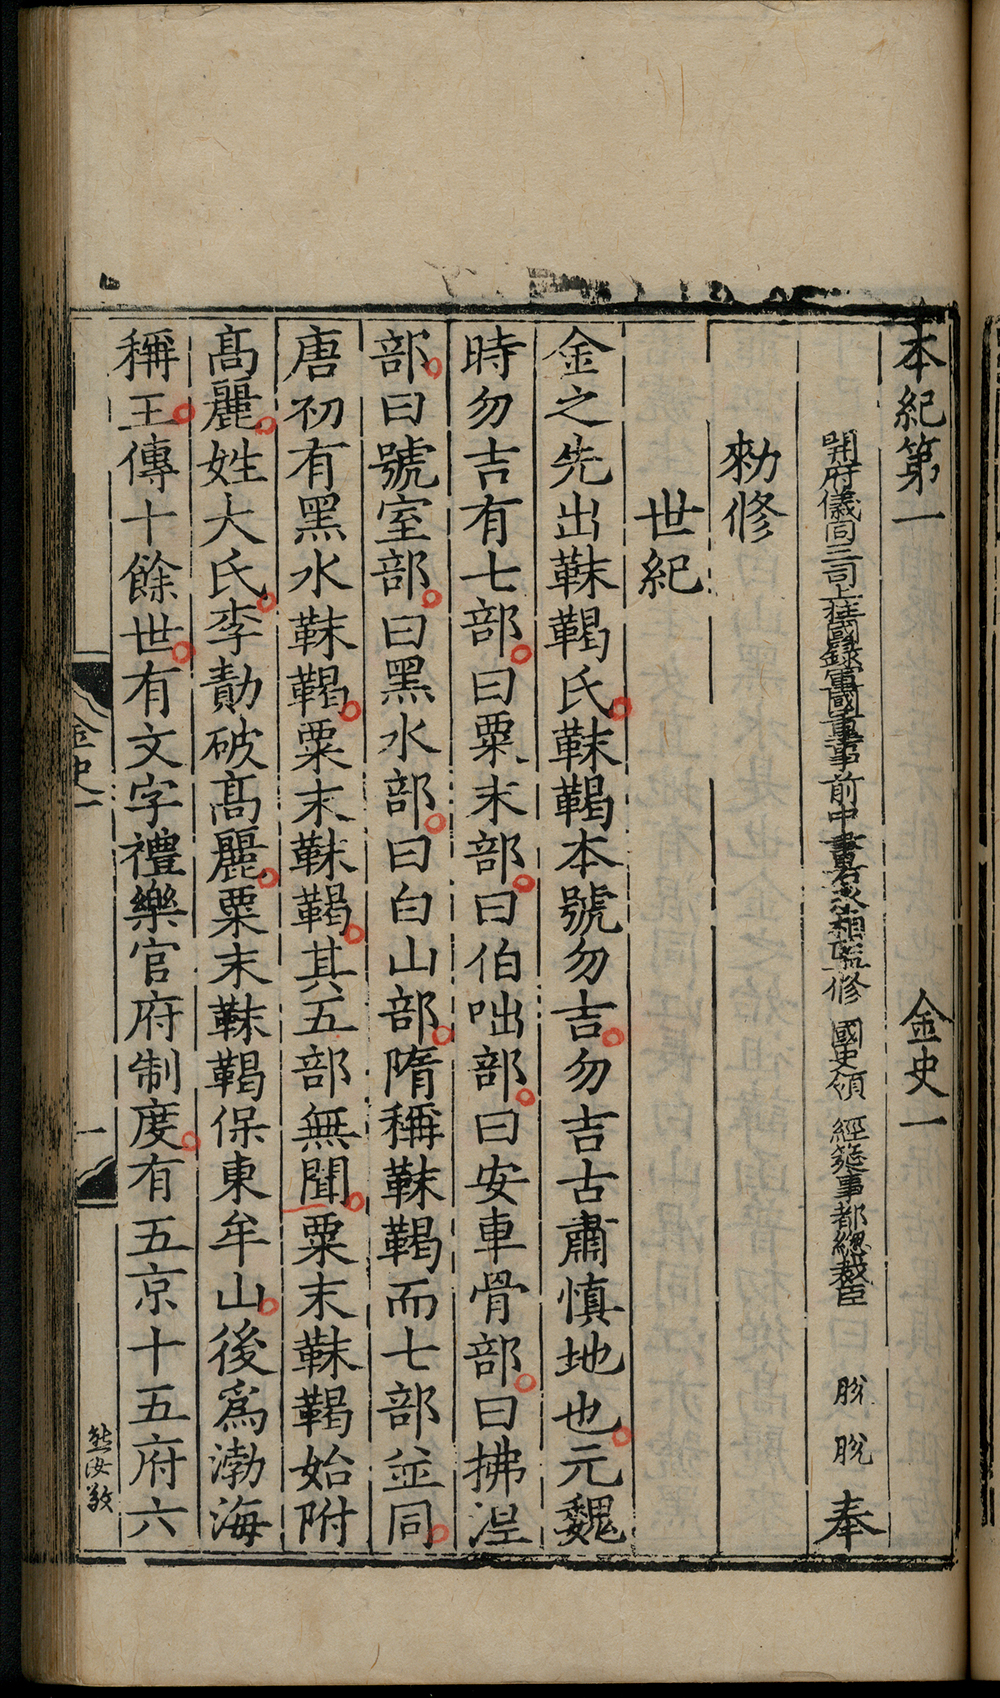 本紀第一 金史一
開府儀同三司上柱國錄軍國重事前中書右丞相監修 國史領 經筵事都總裁臣 脫 脫 奉
勑修
世紀
金之先出靺鞨氏靺鞨本號勿吉勿吉古肅慎地也元魏
時勿吉有七部曰粟末部曰伯咄部曰安車骨部曰拂涅
部曰號室部曰黑水部曰白山部隋稱靺鞨而七部並同
唐初有黑水靺鞨粟末靺鞨其五部無聞粟末靺鞨始附
髙麗姓大氏李勣破髙麗粟末靺鞨保東牟山後爲渤海
稱王傳十餘世有文字禮樂官府制度有五京十五府六
金史一
一
熊汝敬